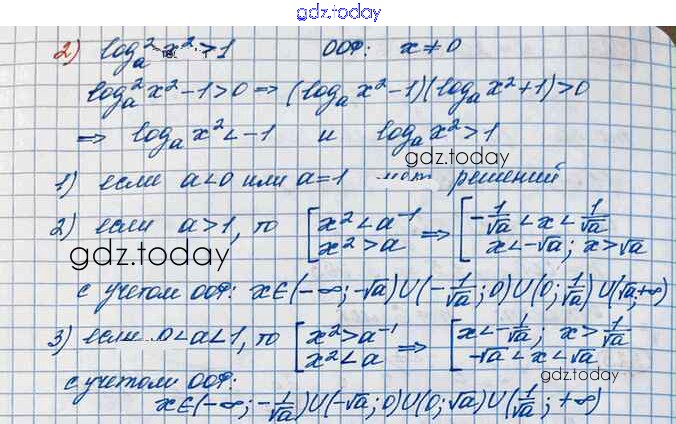 gdz.today
2) log²ₐ x² > 1 ООФ: x ≠ 0
log²ₐ x² - 1 > 0 => (logₐ x² - 1)(logₐ x² + 1) > 0
=> logₐ x² < -1 и logₐ x² > 1
gdz.today
1) если a < 0 или a = 1 нет решений
2) если a > 1, то [x² < a⁻¹ => [-1/√a < x < 1/√a
x² > a x < -√a; x > √a
gdz.today
с учетом ООФ: x ∈ (-∞; -√a) U (-1/√a; 0) U (0; 1/√a) U (√a; +∞)
3) если 0 < a < 1, то [x² > a⁻¹ => [x < -1/√a; x > 1/√a
x² < a -√a < x < √a
gdz.today
с учетом ООФ:
x ∈ (-∞; -1/√a) U (-√a; 0) U (0; √a) U (1/√a; +∞)